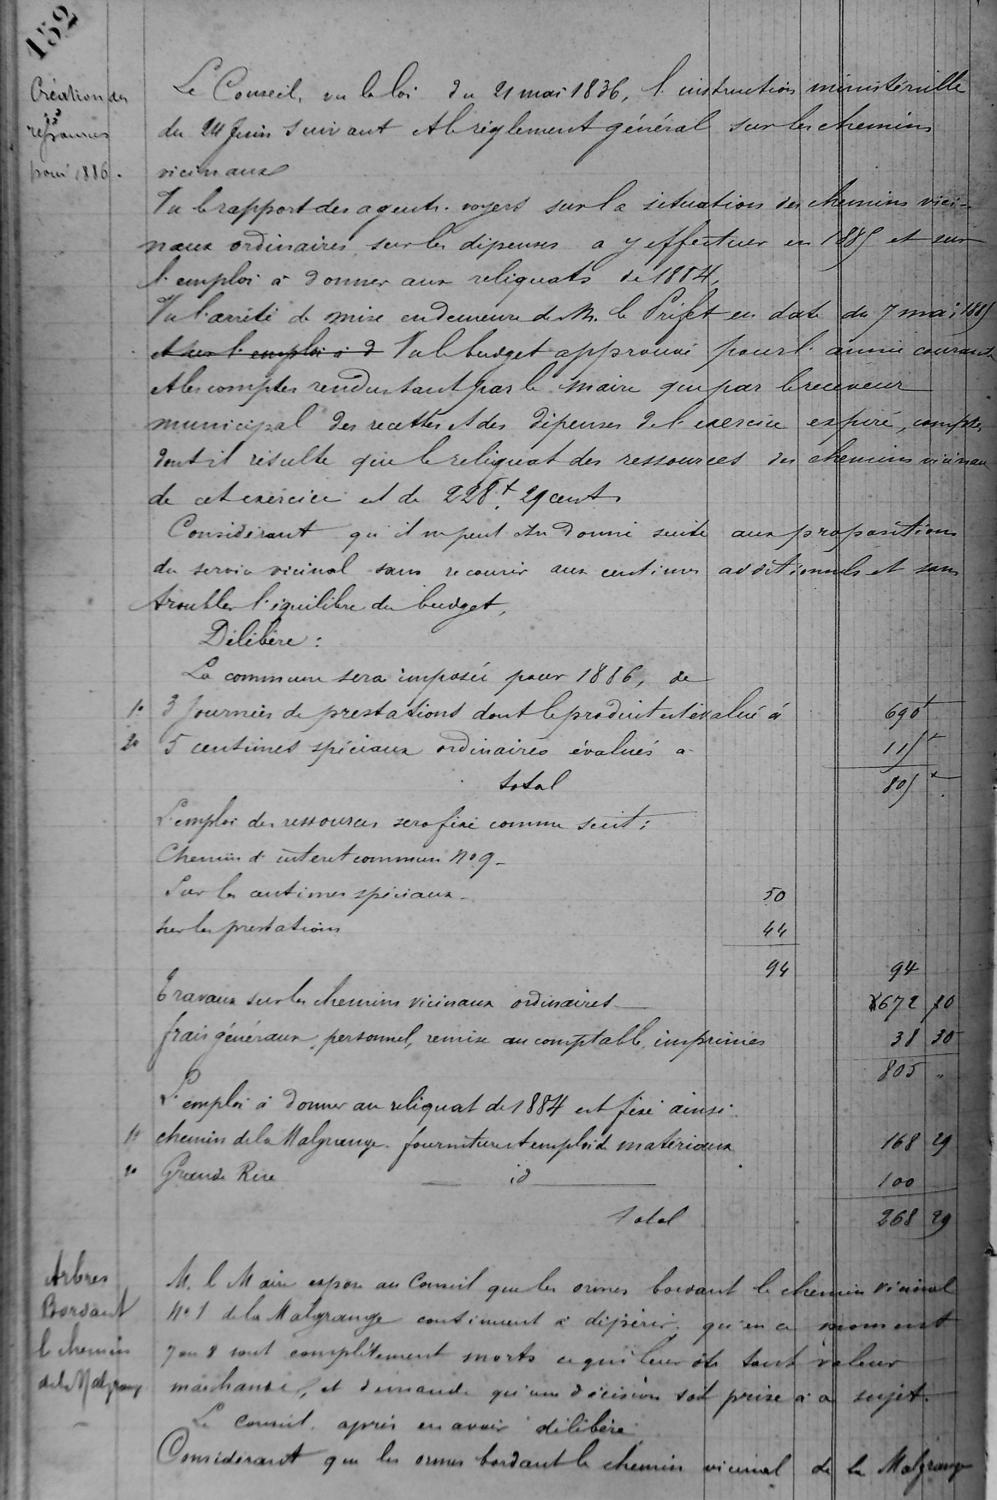 152
Création des
ressources
pour 1886.
Le Conseil, vu la loi du 21 mai 1836, l'instruction ministérielle
du 24 Juin suivant et le règlement général sur les chemins
vicinaux
Vu le rapport des agents-voyers sur la situation des chemins vici-
naux ordinaires, sur les dépenses a y effectuer en 1885 et sur
l'emploi à donner aux reliquats de 1884,
Vu l'arrêté de mise en demeure de M. le Préfet en date du 7 mai 1885
et sur l'emploi à d Vu le budget approuvé pour l'année courante
et les comptes rendus tant par le maire que par le receveur
municipal des recettes et des dépenses de l'exercice expiré, comptes
dont il résulte que le reliquat des ressources des chemins vicinaux
de cet exercice est de 228f. 29 cent.
Considérant qu'il ne peut être donné suite aux propositions
du service vicinal sans recourir aux centimes additionnels et sans
troubler l'équilibre du budget,
Délibère :
La commune sera imposée pour 1886, de
1º 3 Journées de prestations dont le produit est évalué à 690f
2º 5 centimes spéciaux ordinaires évalués a 115f
total 805f
L'emploi des ressources sera fixé comme suit :
Chemin d'interet commun Nº 9-
Sur les centimes spéciaux- 50
sur les prestations 44
94 94
Travaux sur les chemins vicinaux ordinaires 672 70
frais généraux, personnel, remise au comptable, imprimés 38 30
805 "
L'emploi à donner au reliquat de 1884 est fixé ainsi.
1º chemin de la Malgrange. fourniture et emploi de matériaux 168 29
2º Grande Rue id 100
Total 268 29
Arbres
Bordant
le chemin
de la Malgrange
M. le Maire expose au Conseil que les ormes bordant le chemin vicinal
Nº 1 de la Malgrange continuent à dépérir, qu'en ce moment
7 ou 8 sont complètement morts ce qui leur ôte tout valeur
marchande, et demande qu'une décision soit prise à ce sujet.
Le conseil, après en avoir délibéré
Considérant que les ormes bordant le chemin vicinal de la Malgrange